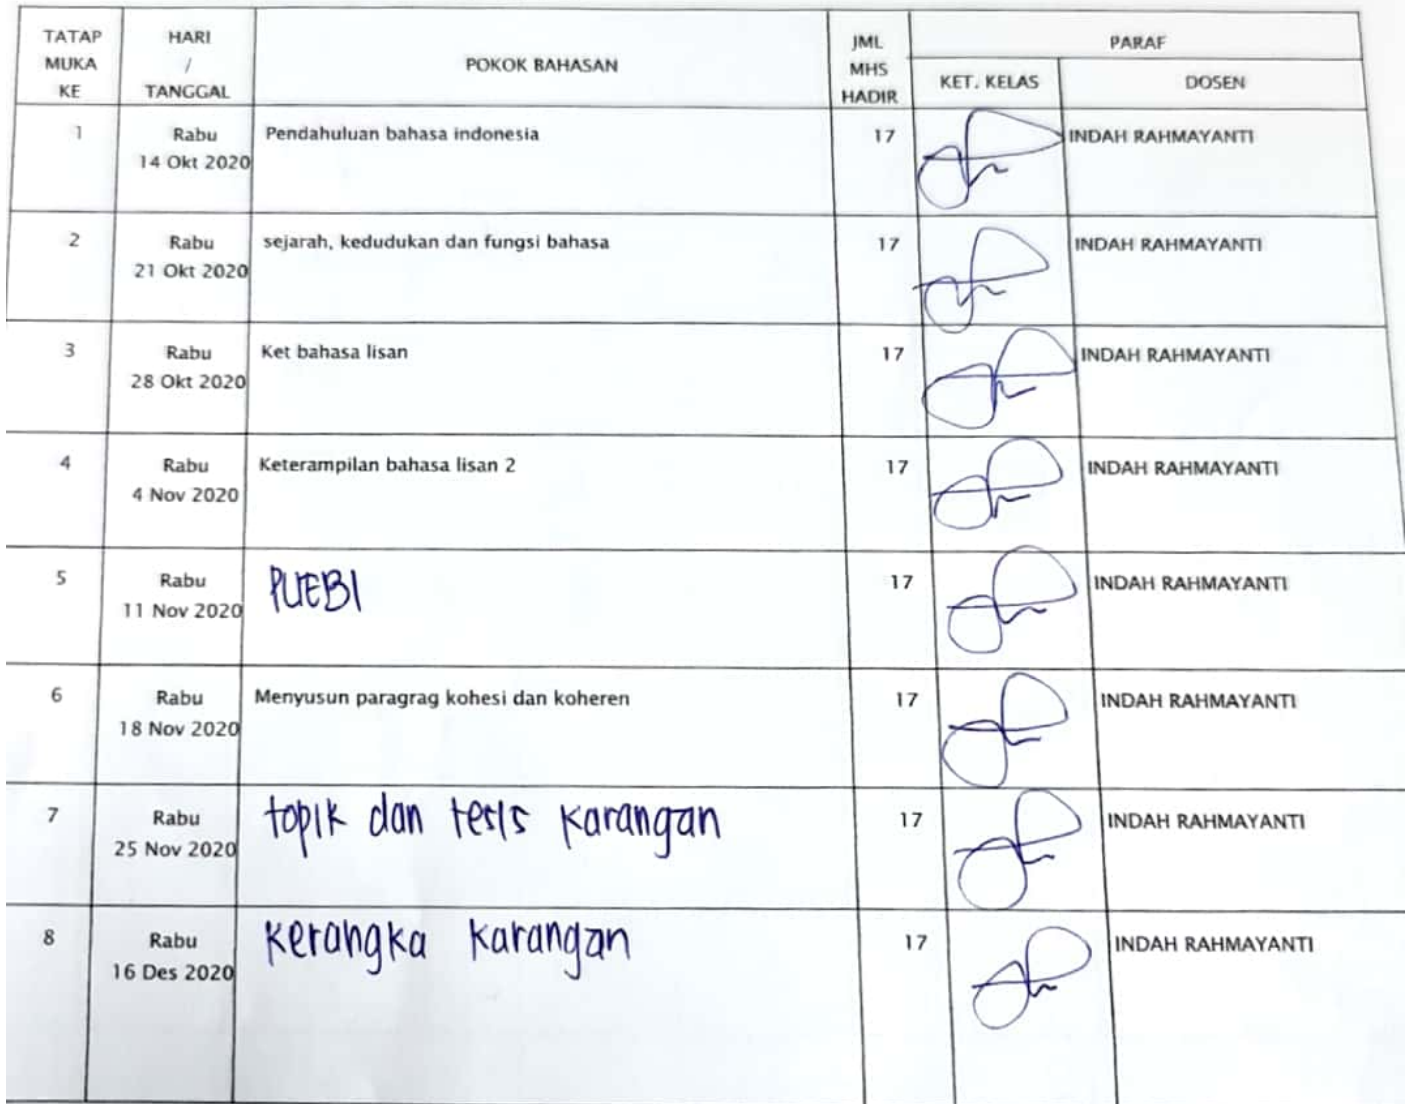 TATAP
MUKA
KE
HARI
/
TANGGAL
POKOK BAHASAN
JML
MHS
HADIR
PARAF
KET. KELAS
DOSEN
1
Rabu
14 Okt 2020
Pendahuluan bahasa indonesia
17
INDAH RAHMAYANTI
2
Rabu
21 Okt 2020
sejarah, kedudukan dan fungsi bahasa
17
INDAH RAHMAYANTI
3
Rabu
28 Okt 2020
Ket bahasa lisan
17
INDAH RAHMAYANTI
4
Rabu
4 Nov 2020
Keterampilan bahasa lisan 2
17
INDAH RAHMAYANTI
5
Rabu
11 Nov 2020
PUEBI
17
INDAH RAHMAYANTI
6
Rabu
18 Nov 2020
Menyusun paragrag kohesi dan koheren
17
INDAH RAHMAYANTI
7
Rabu
25 Nov 2020
topik dan tesis karangan
17
INDAH RAHMAYANTI
8
Rabu
16 Des 2020
kerangka karangan
17
INDAH RAHMAYANTI